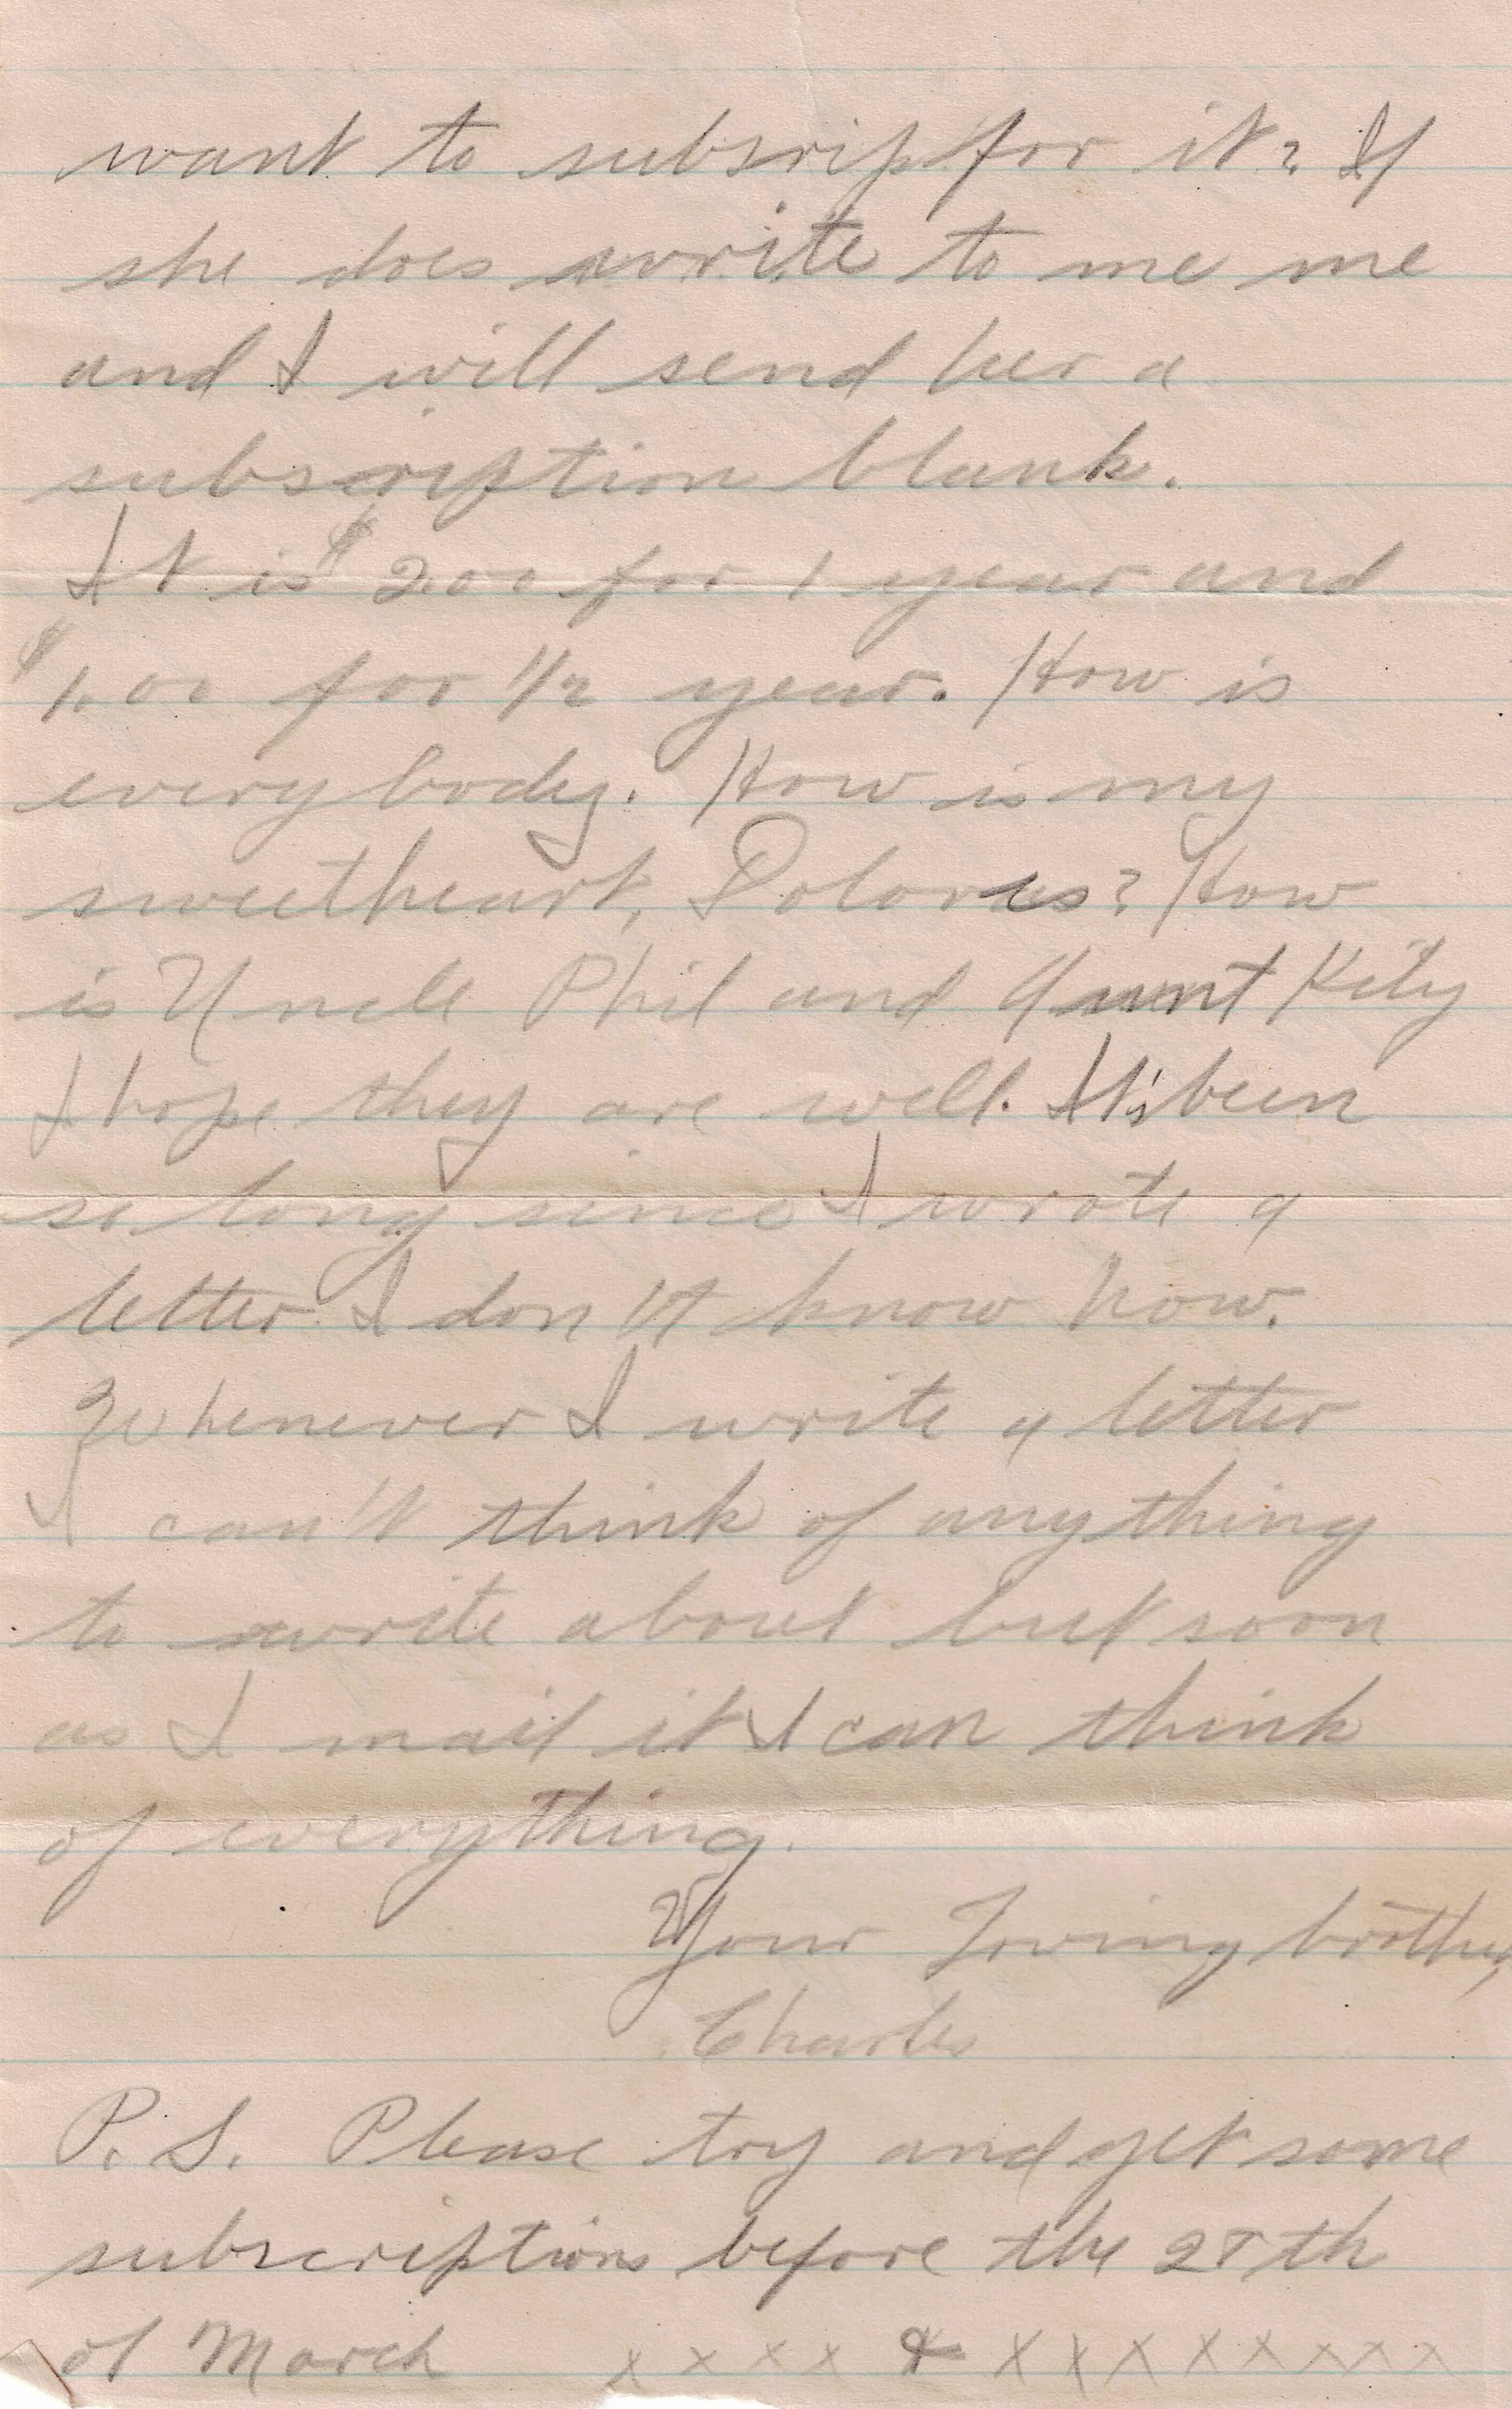 want to subsrip for it? If
she does write to me me
and I will send her a
subscription blank.
It is $2.00 for 1 year and
$1.00 for 1/2 year. How is
everybody. How is my
sweetheart, Dolores? How
is Uncle Phil and Aunt Kity
I hope they are well. It's been
so long since I wrote a
letter I don't know how.
Whenever I write a letter
I can't think of anything
to write about but soon
as I mail it I can think
of everything.
Your Loving brother,
Charles
P. S. Please try and get some
subscriptions before the th
of March x x x x & x x x x x x x x x